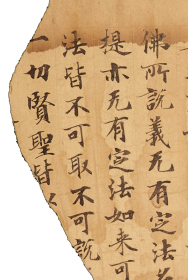 佛所說義无有定法名
提亦无有定法如来可
法皆不可取不可說
一切賢聖皆以